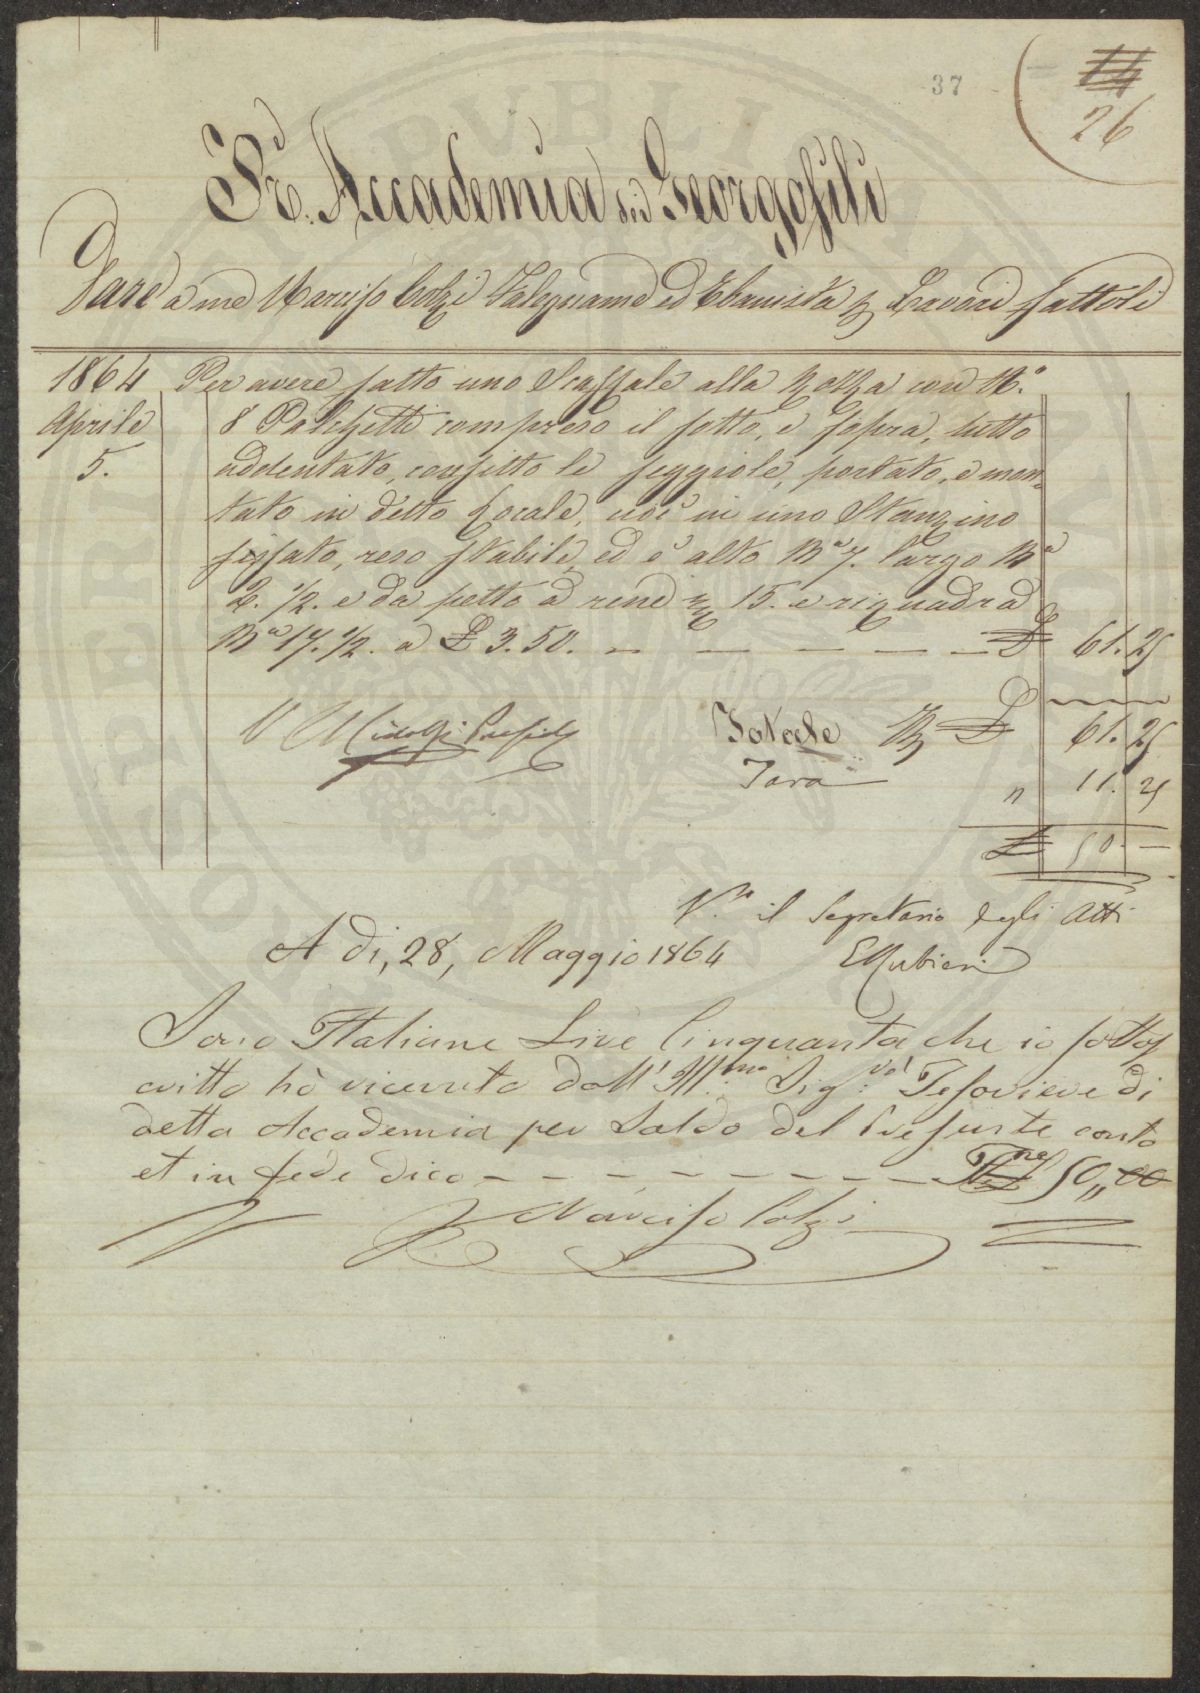 37
14
26
R. Accademia dei Georgofili
Dare a me Narciso Colzi Falegname ed Ebanista p Lavori fattoli
1864 Per avere fatto uno Scaffale alla Rozza con N.°
Aprile 8 Palchetti compreso il sotto, e sopra, tutto
5. addentato, confitto le seggiole, portato, e mon-
tato in detto Locale, cioè in uno Stanzino
fissato, reso stabile, ed è alto Bª 7. largo Bª
2. 1/2. e da petto a rene 15. e riquadra
Bª 17. 1/2. a £ 3.50. — — — — — £ 61.25
V Ridolfi Presid Totale £ 61.25
Tara " 11.25
£ 50 —
V.to il Segretario degli Atti
A di, 28, Maggio 1864 E Rubieri
Sono Italiane Lire Cinquanta che io sottos
critto hò ricevuto dall' Ill.mo Sig.re Tesoriere di
detta Accademia per Saldo del Presente conto
et in fede dico — — — — — — — — £ 50,,00
Narciso Colzi